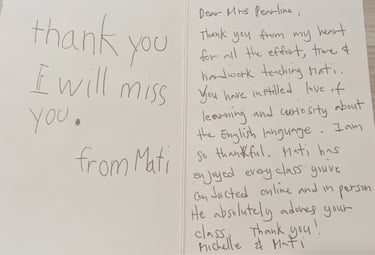 thank you
I will miss
you.
from Mati
Dear Mrs Pearline,
Thank you from my heart
for all the effort, time &
hardwork teaching Mati.
You have instilled love of
learning and curiosity about
the English language. I am
so thankful. Mati has
enjoyed every class you've
conducted online and in person
He absolutely adores your
class. Thank you!
Michelle & Mati